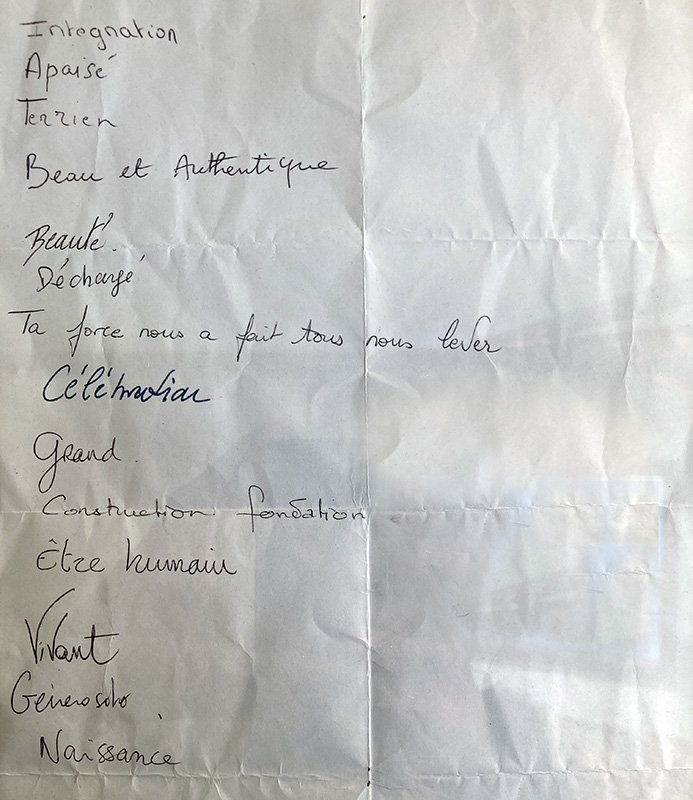 Integration
Apaisé
Terrien
Beau et Authentique
Beauté.
Déchargé
Ta force nous a fait tous nous lever
Célébration
Grand.
Construction. fondation
Être humain
Vivant
Naissance